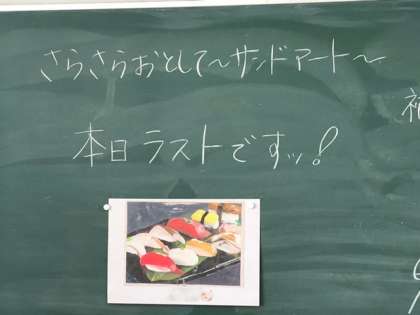 さらさらおとして〜サンドアート〜
本日ラストですッ!